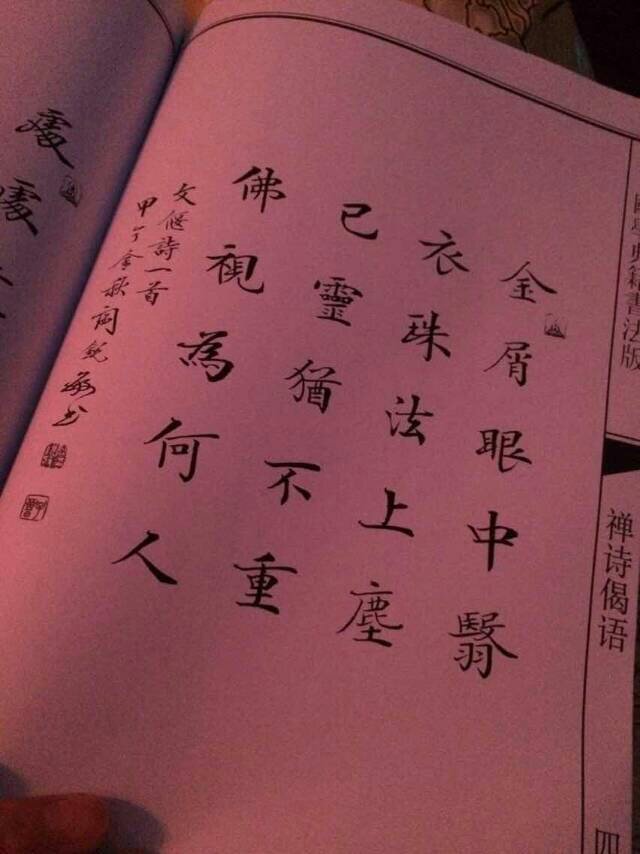 国学典籍書法版
禅诗偈语
四
金屑眼中翳
衣珠法上塵
已靈猶不重
佛視為何人
文偃詩一首
甲午金秋閻銳敏书